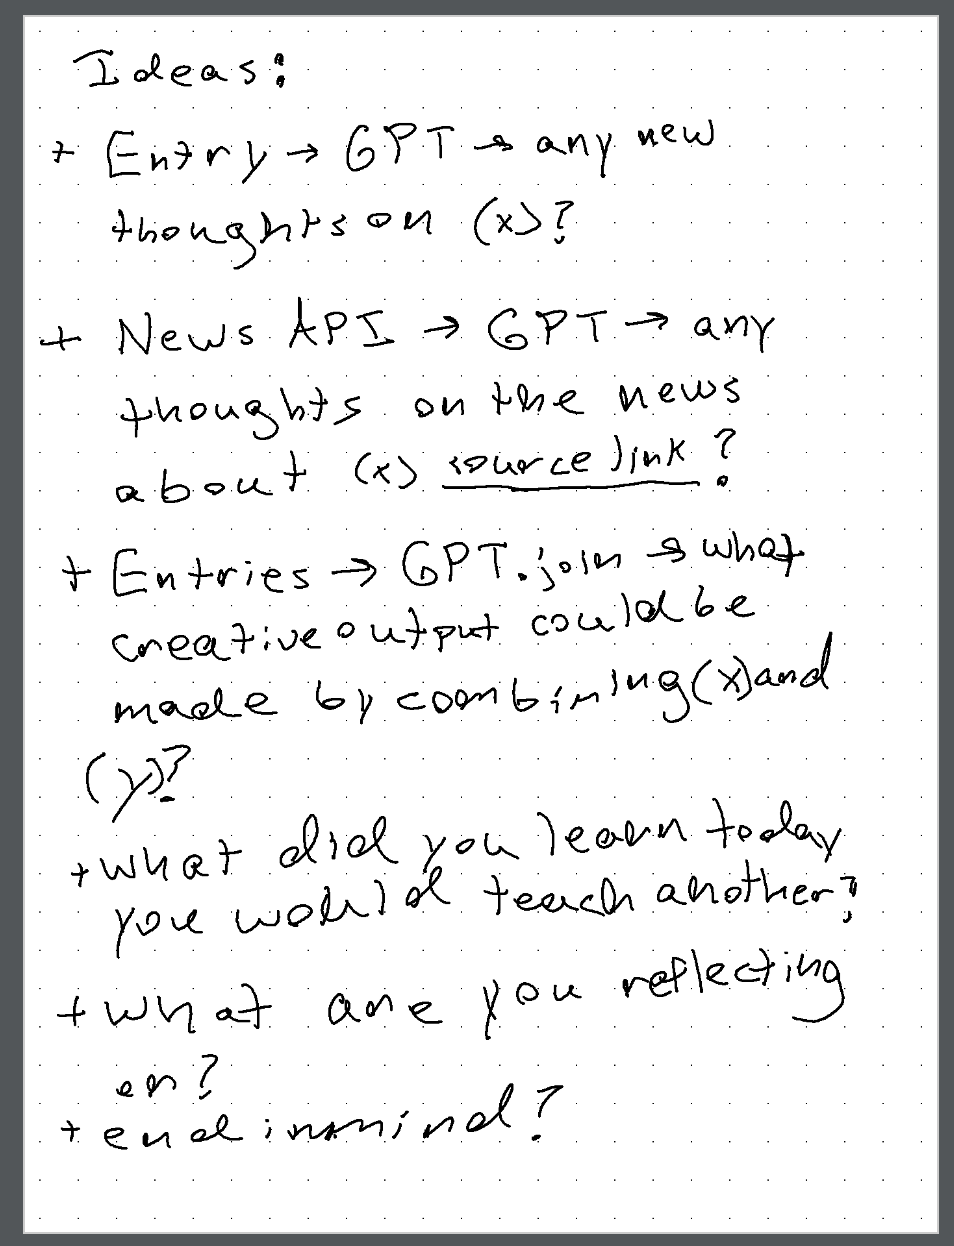 Ideas:
+ Entry → GPT → any new
thoughts on (x)?
+ News API → GPT → any
thoughts on the news
about (x) source link?
+ Entries → GPT.join → what
creative output could be
made by coombining (x) and
(y)?
+ what did you learn today
you would teach another?
+ what are you reflecting
on?
+ end in mind?